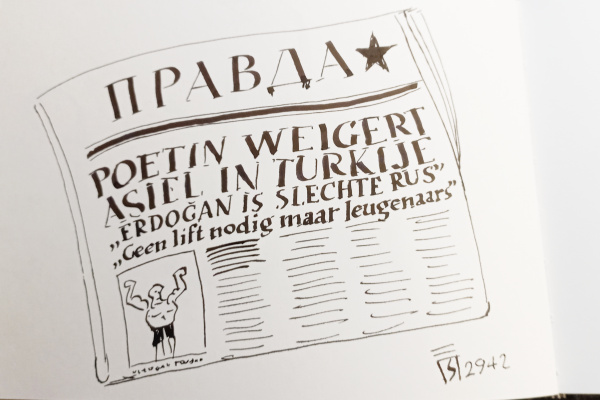 ПРАВДА
POETIN WEIGERT
ASIEL IN TURKIJE
„ERDOĞAN IS SLECHTE RUS”
„Geen lift nodig maar leugenaars”
2942